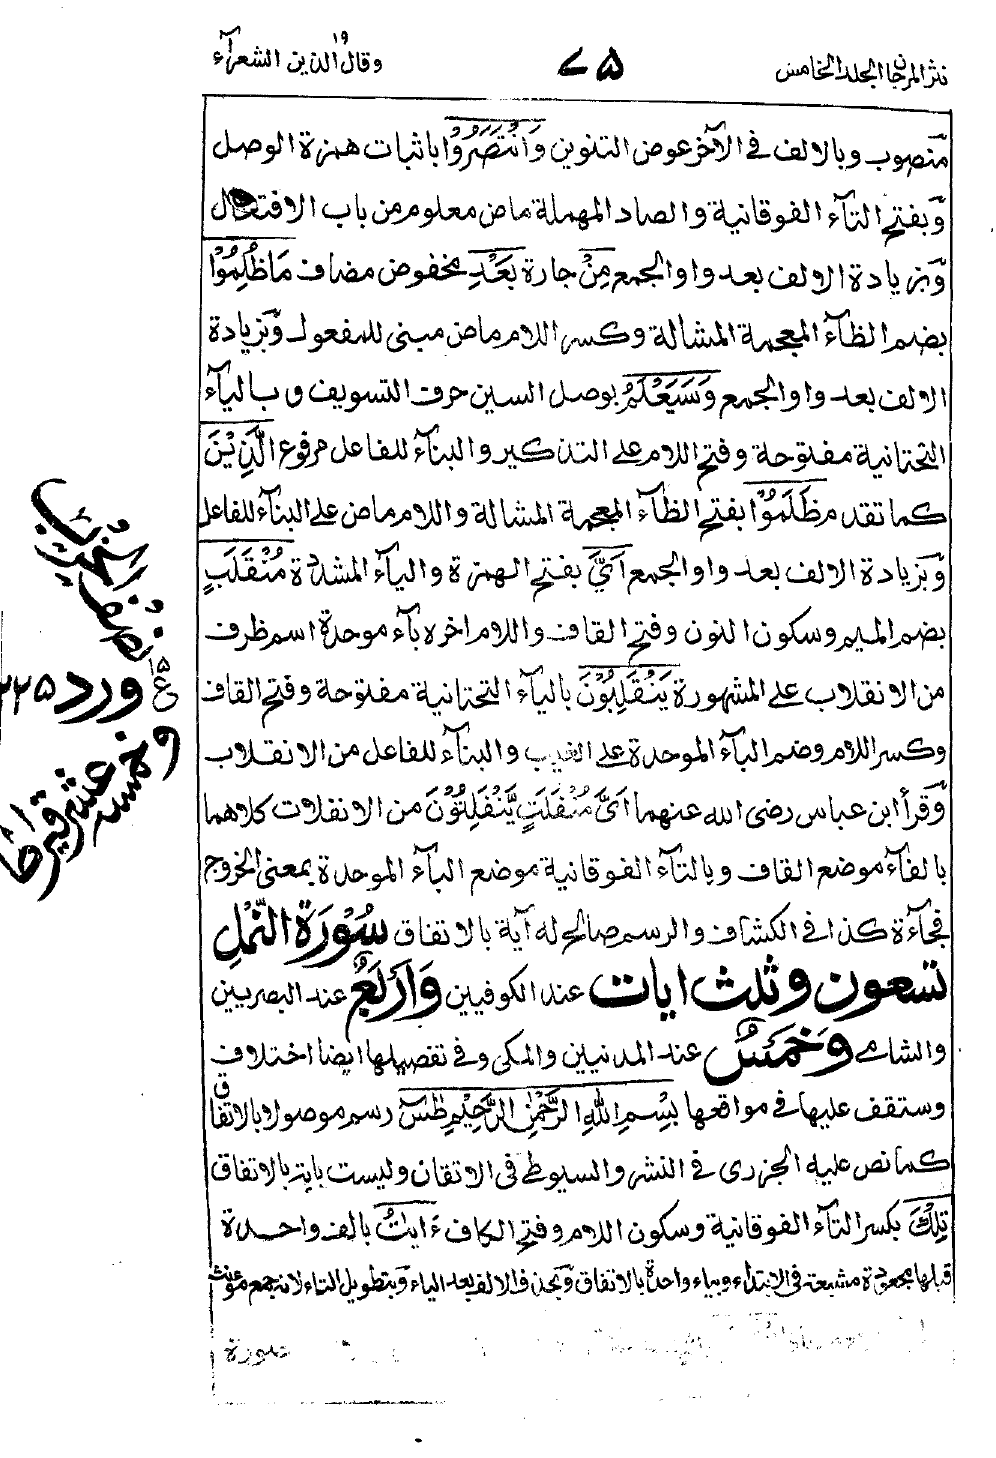 نثر المرجان المجلد الخامس
٧٥
وقال الذين ١٩ الشعرآء
منصوب وبالالف فى الآخر عوض التنوين وَانْتَصَرُوْا باثبات همزة الوصل
وبفتح التآء الفوقانية والصاد المهملة ماض معلوم من باب الافتعال
وبزيادة الالف بعد واو الجمع مِنْ جارة بَعْدِ مخفوض مضاف مَاظُلِمُوْا
بضم الظآء المعجمة المشالة وكسر اللام ماض مبنى للمفعول وبزيادة
الالف بعد واو الجمع وَسَيَعْلَمُ بوصل السين حرف التسويف وباليآء
التحتانية مفتوحة وفتح اللام على التذكير والبنآء للفاعل مرفوع الَّذِيْنَ
كما تقدم ظَلَمُوْا بفتح الظآء المعجمة المشالة واللام ماض على البنآء للفاعل
وبزيادة الالف بعد واو الجمع اَيَّ بفتح الهمزة واليآء المشددة مُنْقَلَبٍ
بضم الميم وسكون النون وفتح القاف واللام اخره بآء موحدة اسم ظرف
من الانقلاب على المشهورة يَنْقَلِبُوْنَ باليآء التحتانية مفتوحة وفتح القاف
وكسر اللام وضم البآء الموحدة على الغيب والبنآء للفاعل من الانقلاب
وقرأ ابن عباس رضى الله عنهما اَىَّ مُنْفَلَتٍ يَّنْفَلِتُوْنَ من الانفلات كلاهما
بالفآء موضع القاف وبالتآء الفوقانية موضع البآء الموحدة بمعنى الخروج
فجآءة كذا فى الكشاف والرسم صالح له آية بالاتفاق سُوْرَةُ النَّمْلِ
تسعون وثلث ايات عند الكوفيين وَاَرْبَعٌ عند البصريين
والشامى وَخَمْسٌ عند المدنيين والمكى وفى تفصيلها ايضا اختلاف
وستقف عليها فى مواقعها بِسْمِ اللهِ الرَّحْمٰنِ الرَّحِيْمِ طٰسٓ رسم موصولا بالاتفاق
كما نص عليه الجزرى فى النشر والسيوطى فى الاتقان وليست باية بالاتفاق
تِلْكَ بكسر التآء الفوقانية وسكون اللام وفتح الكاف ءَايٰتُ بالف واحدة
قبلها مجعودة مشبعة فى الابتداء وبياء واحدة بالاتفاق وبحذف الالف بعد الياء وبتطويل التاء لانه جمع مؤنث
صورة
نصف الحزب
ع ١٥
ورد ٢٢٥